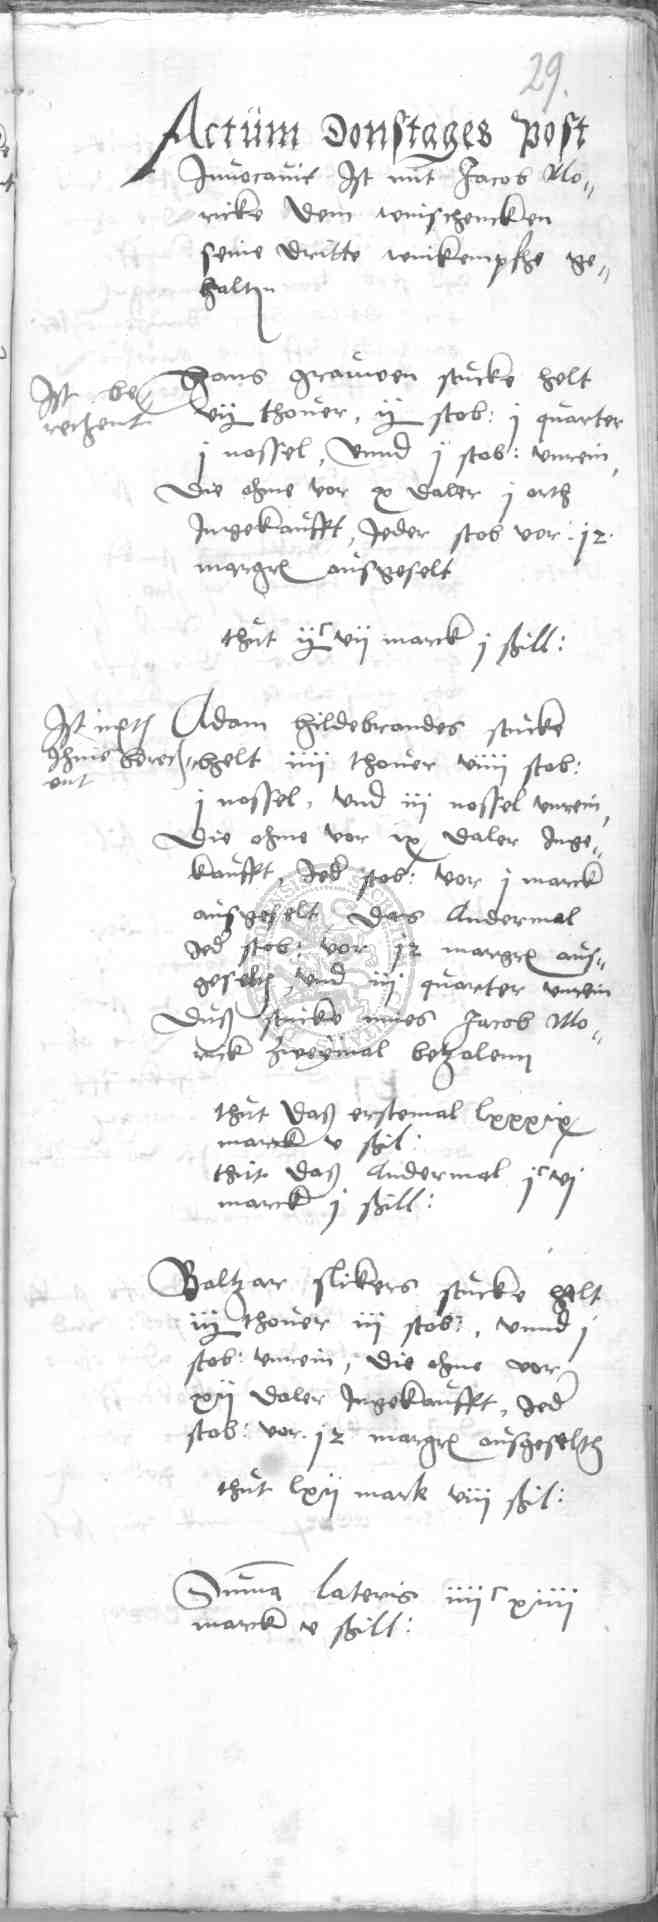 29.
Actüm Donstages Post
Invocavit Ist mit Jacob Mo=
ricke dem winschencken
seine dritte winkempfhe ge=
halten
Ist be
rechent
Hans grauwen stucke helt
vij thouer, ij stob: j quarter
j nossel, vnnd j stob: vnrein,
Die ohme vor x daler j orth
Ingekaufft, Jeder stob vor 12
margr ausgeselt
thut ijc vij marck j ßill:
Ist mith
Ihme berech
ent
Adam Hildebrandes stucke
helt iiii thouer viiii stob:
j nossel, vnd iii nossel vnrein,
Die ohme vor ix daler Inge=
kaufft, Jed stob: vor j marck
ausgeselt, das Andermal
Jed stob: vor 12 margr aus=
geselth, vnd iii quarter vnrein
Duß stucke mues Jacob Mo=
rick zweymal betzalenn
thut daß erstemal lxxxix
marck v ßil:
thut daß Andermal jc vj
marck j ßill:
Baltzar slikers stucke helt
iij thouer iii stob:, vnnd j
stob: vnrein, die ohme vor
xij daler Ingekaufft, Jed
stob: vor 12 margr ausgeselth
thut lxij mark viii ßil:
Summa lateris iiiic xiiii
marck v ßill: